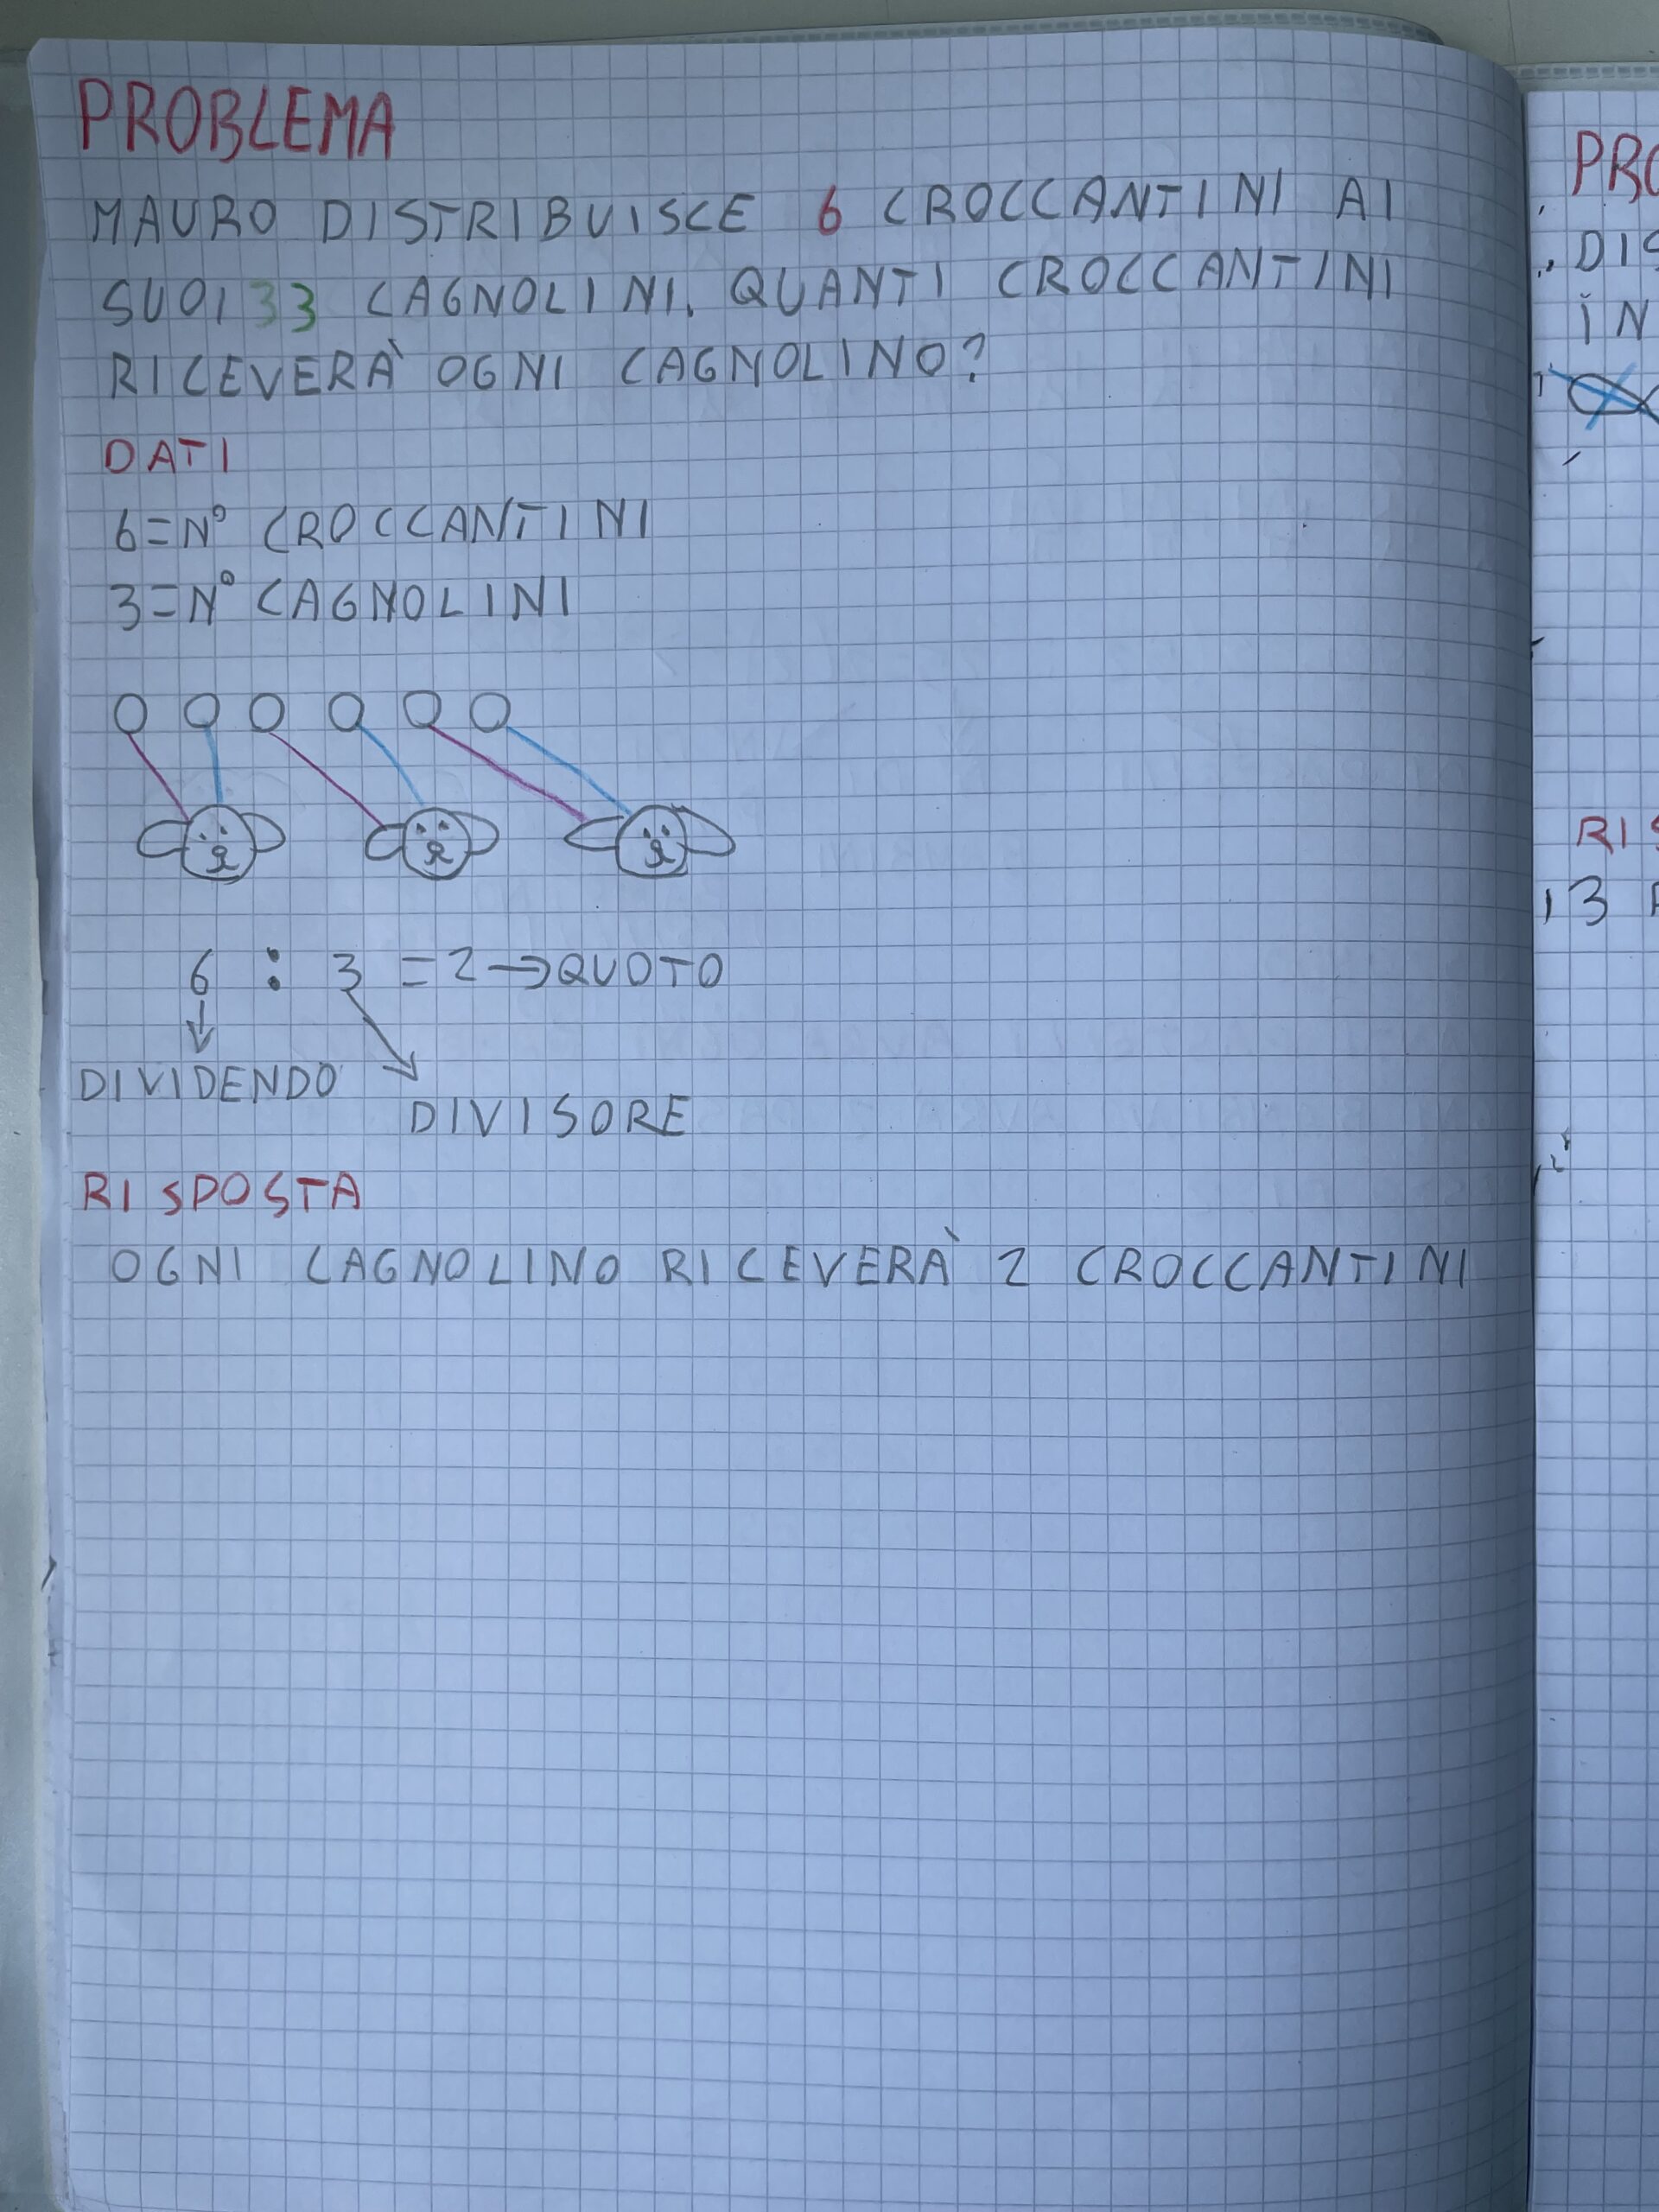 PROBLEMA
MAURO DISTRIBUISCE 6 CROCCANTINI AI
SUOI 33 CAGNOLINI. QUANTI CROCCANTINI
RICEVERÀ OGNI CAGNOLINO?
DATI
6=N° CROCCANTINI
3=N° CAGNOLINI
6 : 3 = 2 → QUOTO
DIVIDENDO
DIVISORE
RISPOSTA
OGNI CAGNOLINO RICEVERÀ 2 CROCCANTINI
PRO
DIS
IN
RIS
13